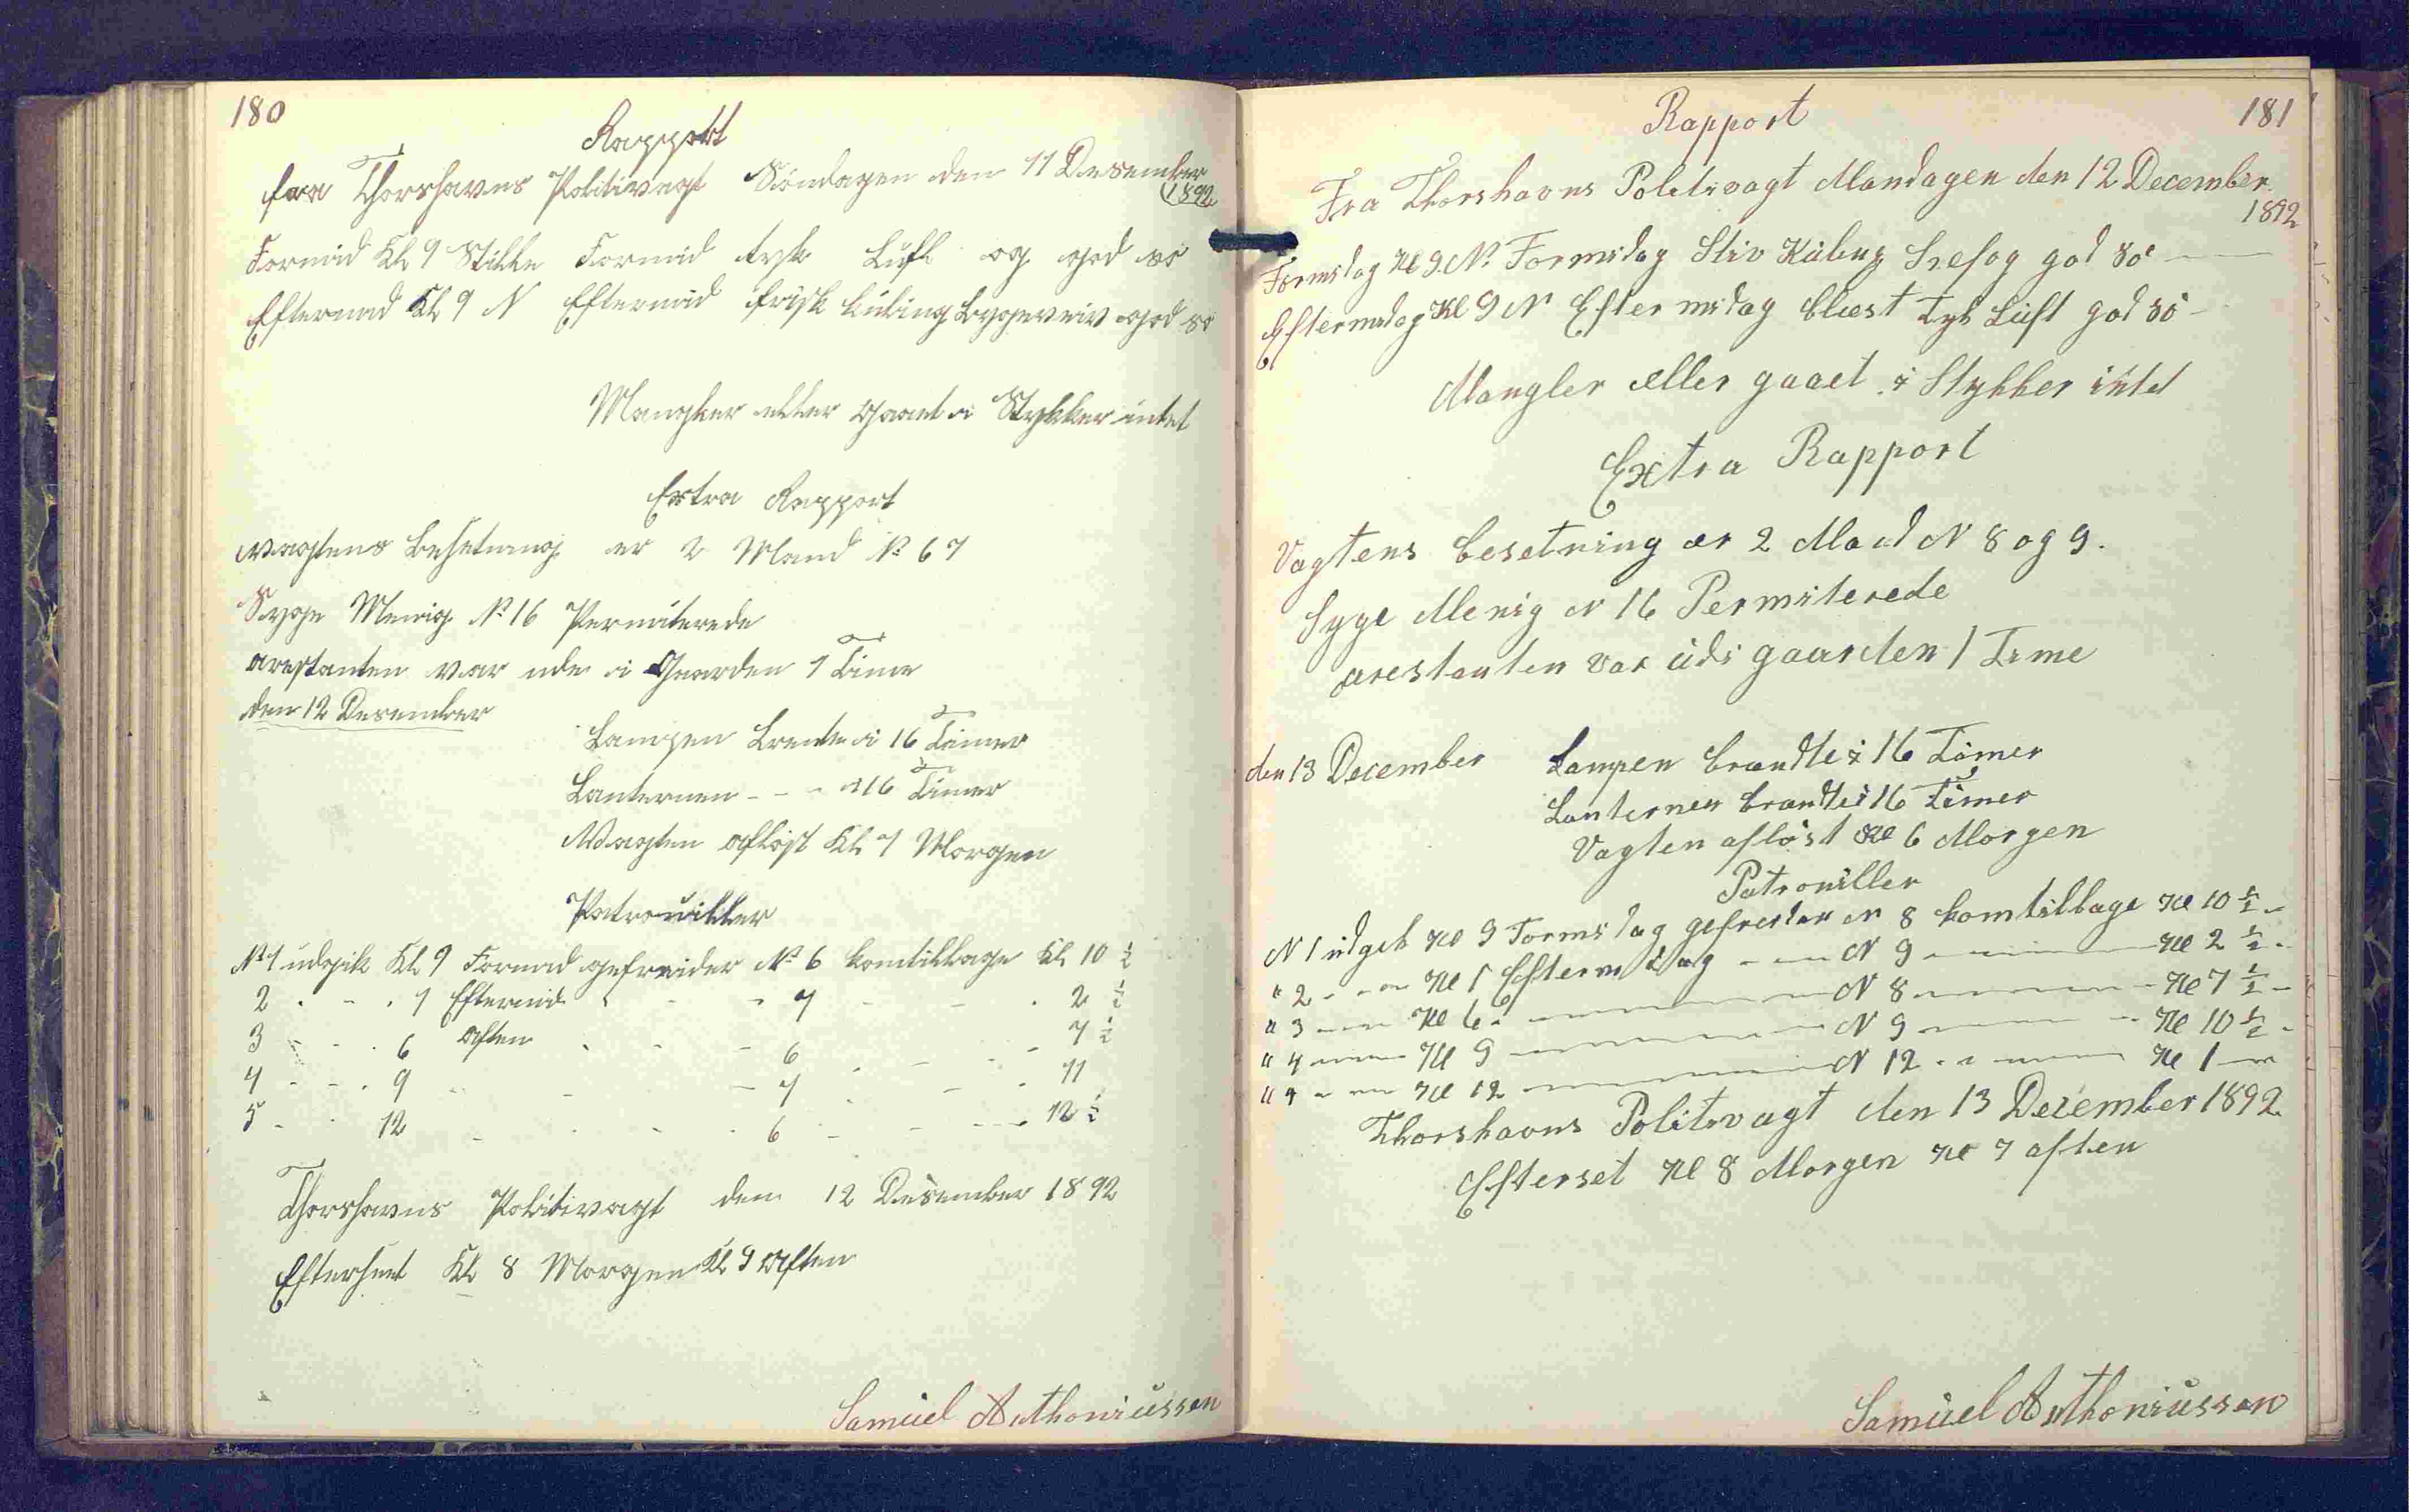 180
Rapport
fra Thorshavns Politivagt Söndagen den 11 Desember
1892
Formid Kl 9 Stille Formid tyk Luft og god sö
Eftermid Kl 9 N Eftermid frisk kuling bygeveir god sö
Mangler eller gaaet i Stykker intet
Extra Rapport
vagtens besetning er 2 Mand No 6 7
Syge Menig No 16 Permiterede
arestanten var ude i Gaarden 1 Time
den 12 Desember
Lampen brente i 16 Timer
Lanternen - - - i 16 Timer
Vagten aflöst Kl 7 Morgen
Patrouiller
No 1 udgik Kl 9 Formid gefreider No 6 komtilbage Kl 10 ½
2 - - - 1 Eftermid - - - 7 - - - 2 ½
3 - - - 6 Aften - - - 6 - - - 7 ½
4 - - - 9 - - - 7 - - - 11
5 - - 12 - - - 6 - - - 12 ½
Thorshavns Politivagt den 12 Desember 1892
Efterseet Kl 8 Morgen Kl 9 Aften
Samuel Anthoniussen
Rapport
181
Fra Thorshavns Politivagt Mandagen den 12 December
1892
Formidag Kl 9 N. Formidag Stiv Kuling Snefog god sö
Eftermidag Kl 9 N Eftermidag blæst tyk Luft god sö -
Mangler eller gaaet i Stykker intet
Extra Rapport
Vagtens besetning er 2 Mand N 8 og 9.
Syge Menig N 16 Permiterede
arestanten var udi gaarden 1 Time
den 13 December Lampen brændte i 16 Timer
Lanternen brændte i 16 Timer
Vagten aflöst Kl 6 Morgen
Patrouiller
N 1 udgik Kl 9 Formidag gefreider N 8 kom tilbage Kl 10 ½ -
" 2 - - - Kl 1 Eftermidag - - - N 9 - - - Kl 2 ½ -
" 3 - - - Kl 6 - - - N 8 - - - Kl 7 ½ -
" 4 - - - Kl 9 - - - N 9 - - - Kl 10 ½ -
" 4 - - - Kl 12 - - - N 12 - - - Kl 1 -
Thorshavns Politivagt den 13 December 1892
Efterset Kl 8 Morgen Kl 7 aften
Samuel Anthoniussen